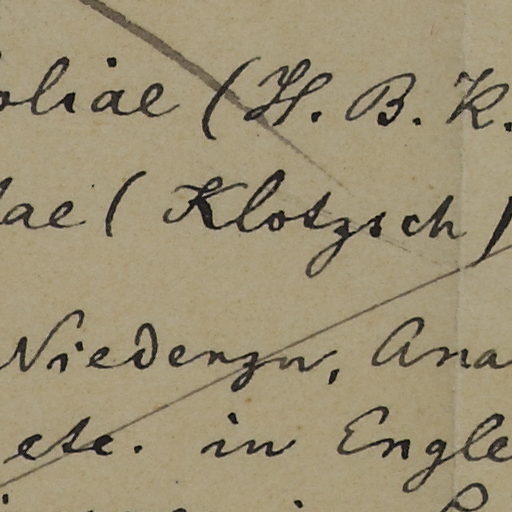 oliae (H. B. K.
ae (Klotzsch)
Niedenzu, Ana
etc. in Engle